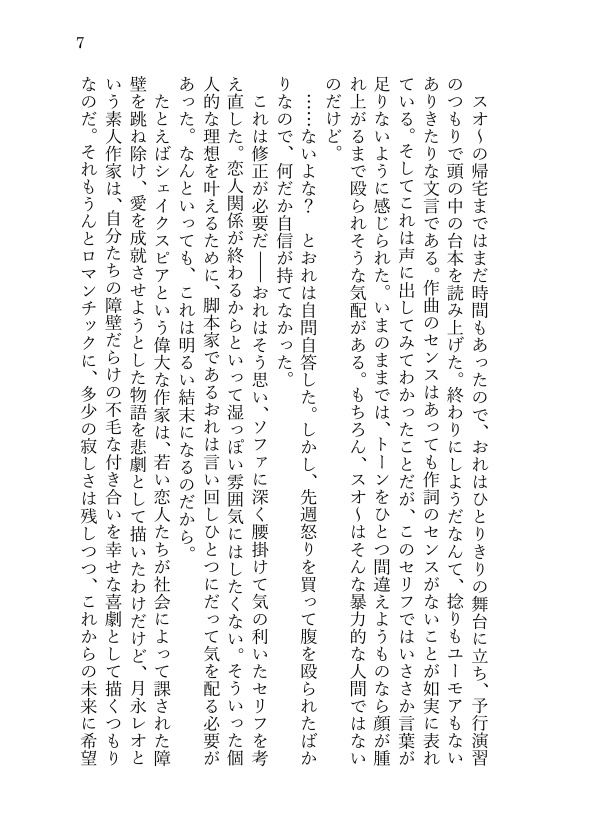 7
スオ～の帰宅まではまだ時間もあったので、おれはひとりきりの舞台に立ち、予行演習
のつもりで頭の中の台本を読み上げた。終わりにしようだなんて、捻りもユーモアもない
ありきたりな文言である。作曲のセンスはあっても作詞のセンスがないことが如実に表れ
ている。そしてこれは声に出してみてわかったことだが、このセリフではいささか言葉が
足りないように感じられた。いまのままでは、トーンをひとつ間違えようものなら顔が腫
れ上がるまで殴られそうな気配がある。もちろん、スオ～はそんな暴力的な人間ではない
のだけど。
……ないよな？　とおれは自問自答した。しかし、先週怒りを買って腹を殴られたばか
りなので、何だか自信が持てなかった。
これは修正が必要だ――おれはそう思い、ソファに深く腰掛けて気の利いたセリフを考
え直した。恋人関係が終わるからといって湿っぽい雰囲気にはしたくない。そういった個
人的な理想を叶えるために、脚本家であるおれは言い回しひとつにだって気を配る必要が
あった。なんといっても、これは明るい結末になるのだから。
たとえばシェイクスピアという偉大な作家は、若い恋人たちが社会によって課された障
壁を跳ね除け、愛を成就させようとした物語を悲劇として描いたわけだけど、月永レオと
いう素人作家は、自分たちの障壁だらけの不毛な付き合いを幸せな喜劇として描くつもり
なのだ。それもうんとロマンチックに、多少の寂しさは残しつつ、これからの未来に希望